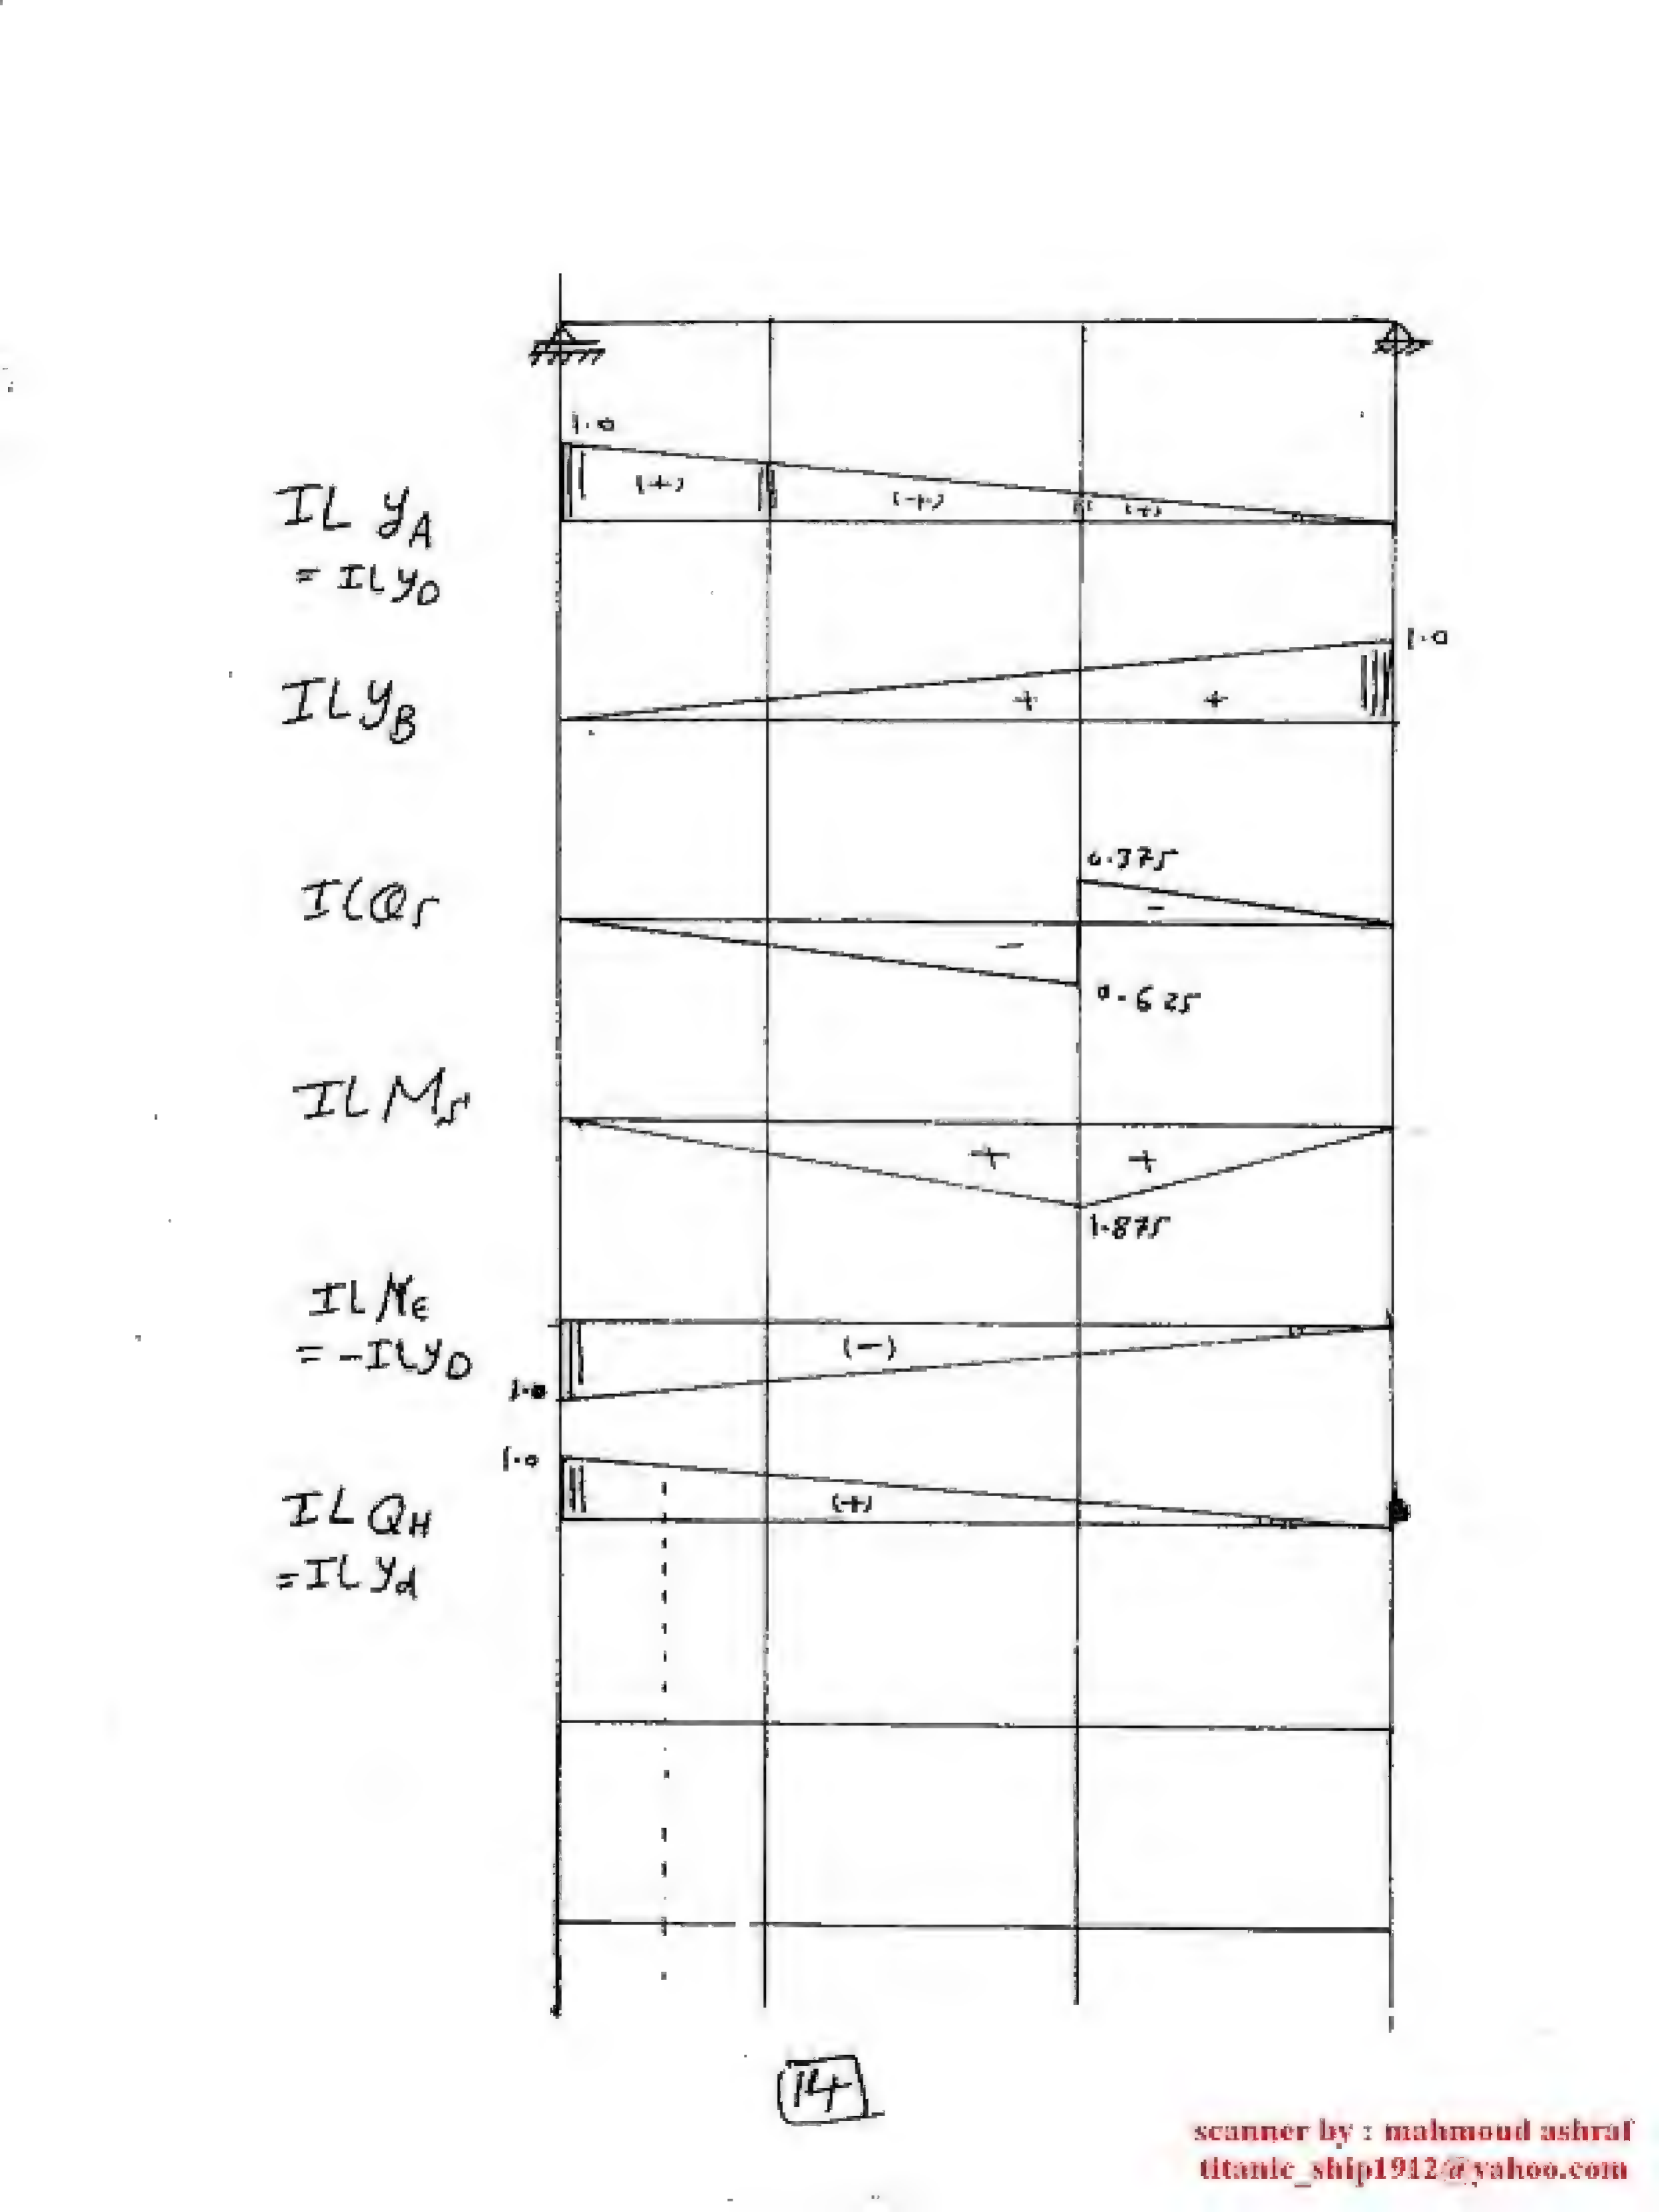 1.0
(+)
(+)
(+)
IL yA
= ILyD
1.0
+
+
ILyB
0.375
-
ILQs
-
0.625
ILMs
+
+
1.875
ILNE
= -ILyD
(-)
1.0
1.0
(+)
ILQH
=ILyd
14
scanner by : mahmoud ashraf
titanic_ship1912@yahoo.com